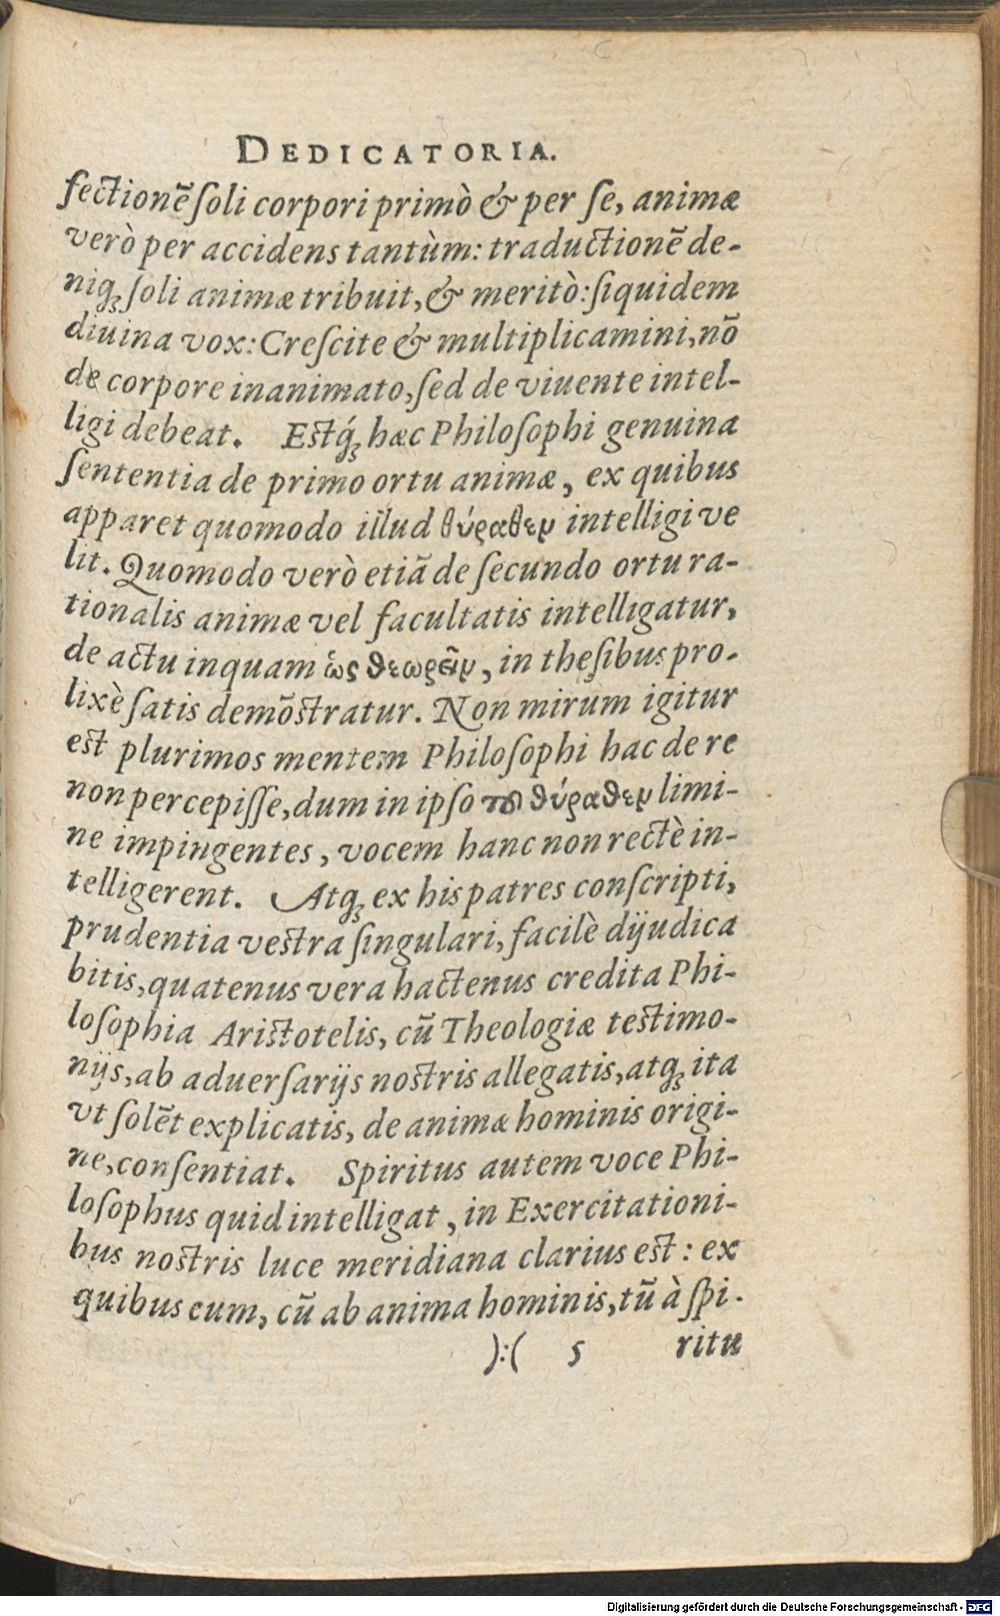 DEDICATORIA.
fectionẽ ſoli corpori primò & per ſe, animæ
verò per accidens tantùm: traductionẽ de-
niq́ꝫ ſoli animæ tribuit, & meritò: ſiquidem
diuina vox: Creſcite & multiplicamini, nõ
de corpore inanimato, ſed de viuente intel-
ligi debeat. Eſtq́ꝫ hæc Philoſophi genuina
ſententia de primo ortu animæ, ex quibus
apparet quomodo illud θύραθεν intelligi ve
lit. Quomodo verò etiã de ſecundo ortu ra-
tionalis animæ vel facultatis intelligatur,
de actu inquam ὡς θεωρεῖν, in theſibus pro-
lixè ſatis demõſtratur. Non mirum igitur
eſt plurimos mentem Philoſophi hac de re
non percepiſſe, dum in ipſo τοῦ θύραθεν limi-
ne impingentes, vocem hanc non rectè in-
telligerent. Atqꝫ ex his patres conſcripti,
prudentia veſtra ſingulari, facilè dijudica
bitis, quatenus vera hactenus credita Phi-
loſophia Ariſtotelis, cũ Theologiæ teſtimo-
nijs, ab aduerſarijs noſtris allegatis, atqꝫ ita
vt ſolẽt explicatis, de animæ hominis origi-
ne, conſentiat. Spiritus autem voce Phi-
loſophus quid intelligat, in Exercitationi-
bus noſtris luce meridiana clarius eſt: ex
quibus eum, cũ ab anima hominis, tũ à ſpi-
):( 5 ritu
Digitalisierung gefördert durch die Deutsche Forschungsgemeinschaft - DFG